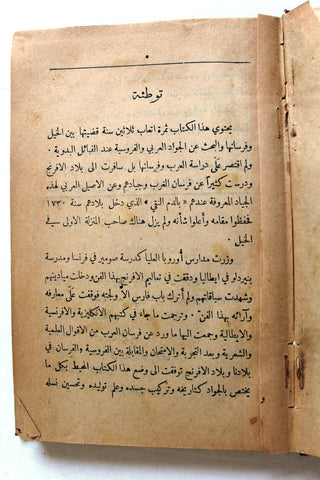 توطئة
يحتوي هذا الكتاب ثمرة اتعاب ثلاثين سنة قضيتها بين الخيل
وفرسانها والبحث عن الجواد العربي والفروسية عند القبائل البدوية ·
ولم اقتصر على دراسة العرب وفرسانها بل سافرت الى بلاد الافرنج
ودرست كثيراً عن فرسان الغرب وجيادهم وعن الاصيل العربي لهذه
الجياد المعروفة عندهم «بالدم النقي» الذي دخل بلادهم سنة ١٧٣٠
فحفظوا مقامه وأعلوا شأنه ولم يزل هناك صاحب المنزلة الاولى سيف
الخيل ·
وزرت مدارس أوروبا العليا كمدرسة صومير في فرنسا ومدرسة
بنيرولو في ايطاليا ودققت في تعاليم الافرنج بهذا الفن ودخلت ميادينهم
وشهدت سباقاتهم ولم أترك باب فارس الا ولجته فوقفت على معارفه
وآرائه بهذا الفن · وترجمت ما جاء في كتبهم الانكليزية والافرنسية
والايطالية وجمعت اليها ما ورد عن فرسان العرب من الاقوال العلمية
والشعرية وبعد التجربة والامتحان والمقابلة بين الفروسية والفرسان في
بلادنا وبلاد الافرنج توفقت الى وضع هذا الكتاب المحيط بكل ما
يختص بالجواد كتاريخه وتركيب جسده وعلم توليده وتحسين نسله